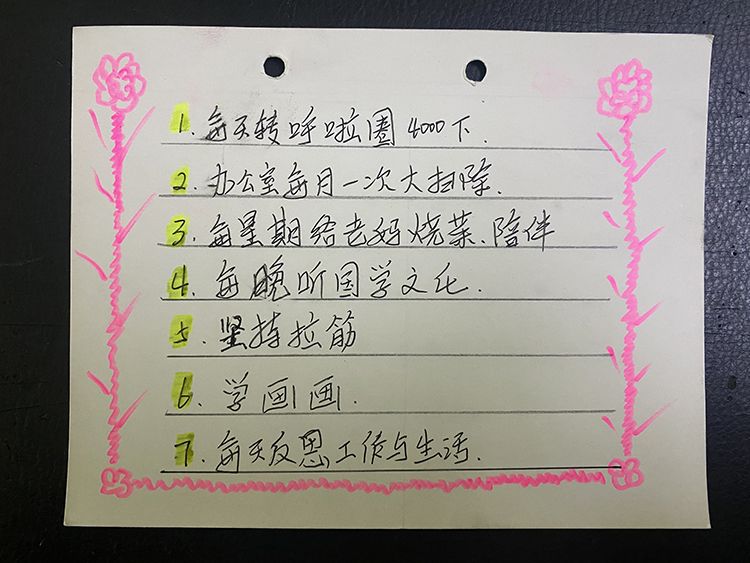 1. 每天转呼啦圈4000下.
2. 办公室每月一次大扫除.
3. 每星期给老妈烧菜.陪伴
4. 每晚听国学文化.
5. 坚持拉筋
6. 学画画.
7. 每天反思工作与生活.